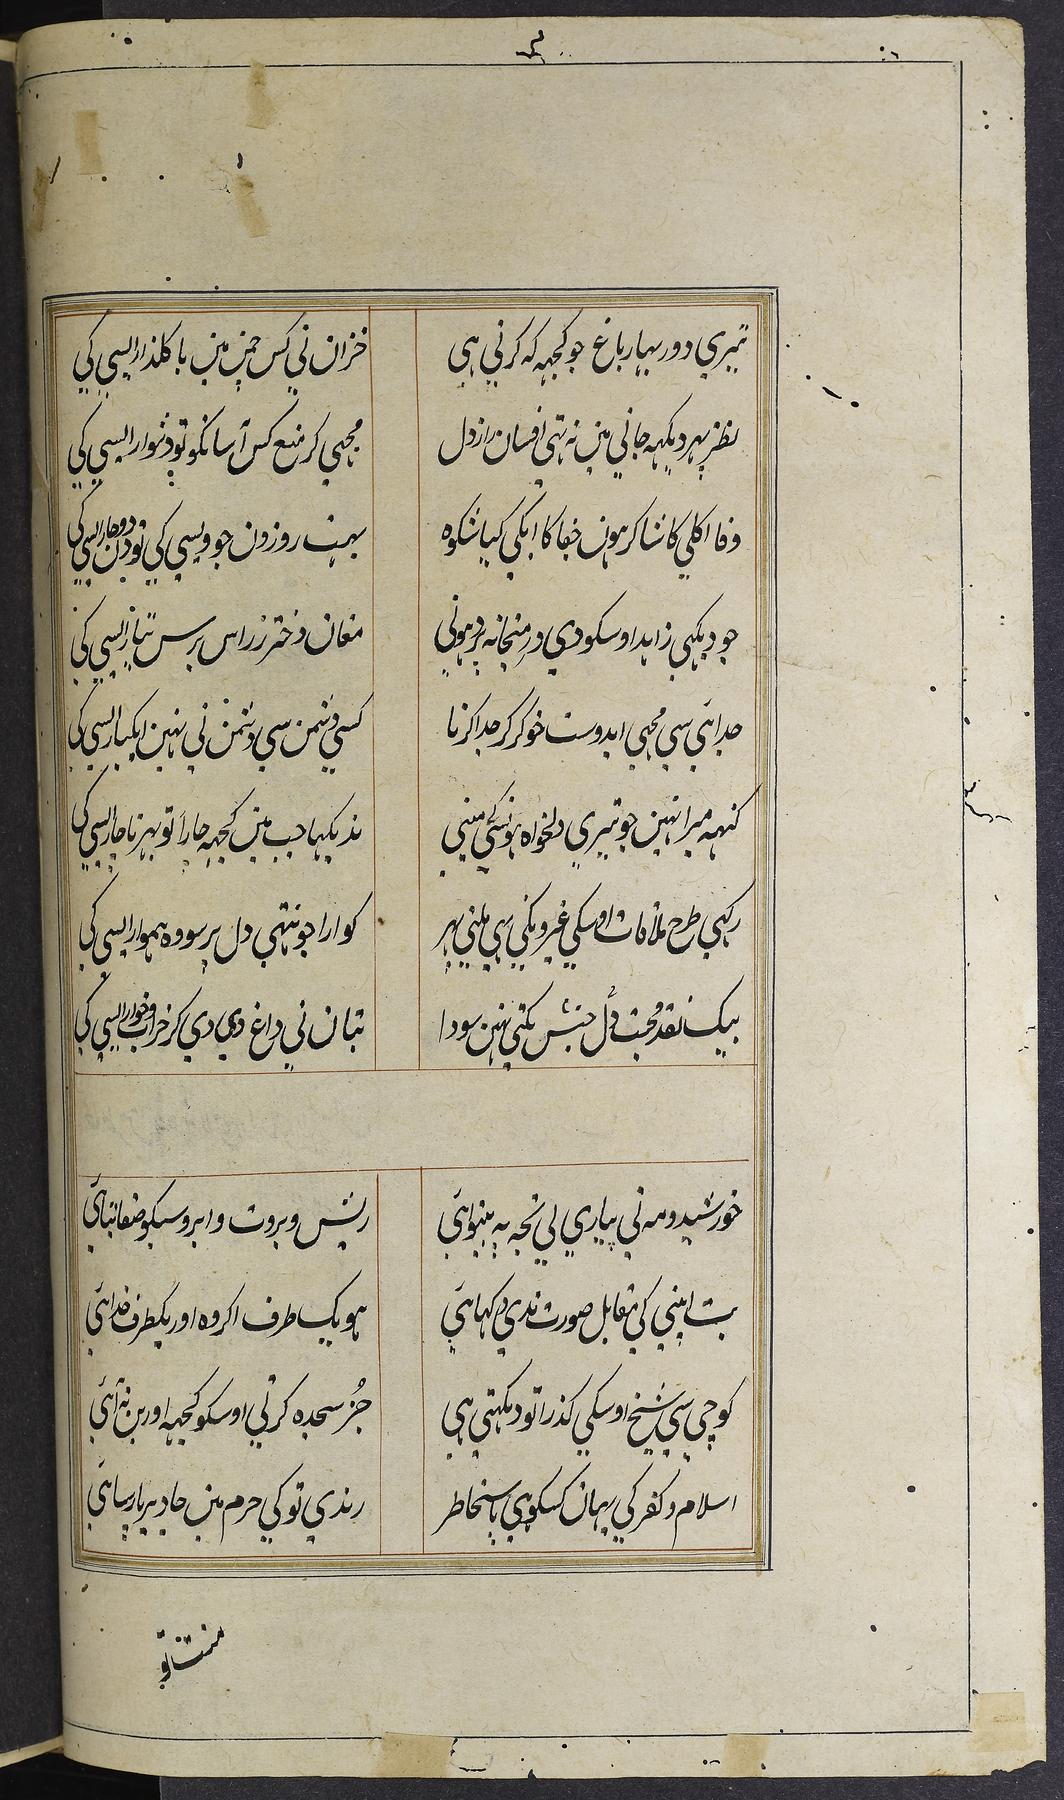 تیری دور بہار باغ جو کجہہ کہ کرنی ہی خزان نی کس چمن مین با کلذار ایسی کی
نظر بہر دیکہہ جانی مین نہ تہی افسان راز دل مجہی کر منع کس آسانکو تو دشوار ایسی کی
وفا اکلی کا شاکر ہون جفا کا ابکی کیا شکوہ بہت روزون جو ویسی کی تو دن دو چار ایسی کی
جو دیکہی زاہد اوسکو دی در منجانہ پر دہونی مغان دختر زر اس برس تیار ایسی کی
جدائی سی مجہی ایدوست خوکر کر جدا کرنا کسی دشمن سی دشمن نی نہین ایکبار ایسی کی
کنہہ میرا نہین جو تیری دلخواہ ہو نسکی مینی ندیکہا جب مین کجہہ چارا تو بہر ناچار ایسی کی
رکہی طرح ملاقات اوسکی غیرونکی ہی ملنی پہر کوارا جو نتہی دل پر سو وہ ہموار ایسی کی
بیک نقد محبت دل جنس بکتی نہین سودا بتان نی داغ دی دی کر خراب و خوار ایسی کی
خورشید و مہ نی پیاری لی تجہہ یہ بینوائی ریش و بروت و ابرو سبکو صفا بتائی
بت اپنی کی مقابل صورت ندی دکہائی ہو یک طرف اکر وہ اور یکطرف خدائی
کوچی سی شیخ اوسکی کذرا تو دیکہتی ہی جز سجدہ کرنی اوسکو کجہہ اور بن نہ آئی
اسلام و کفر کی یہان کسکو ہی پاسخاطر رندی تو کی حرم مین جا دیر پارسائی